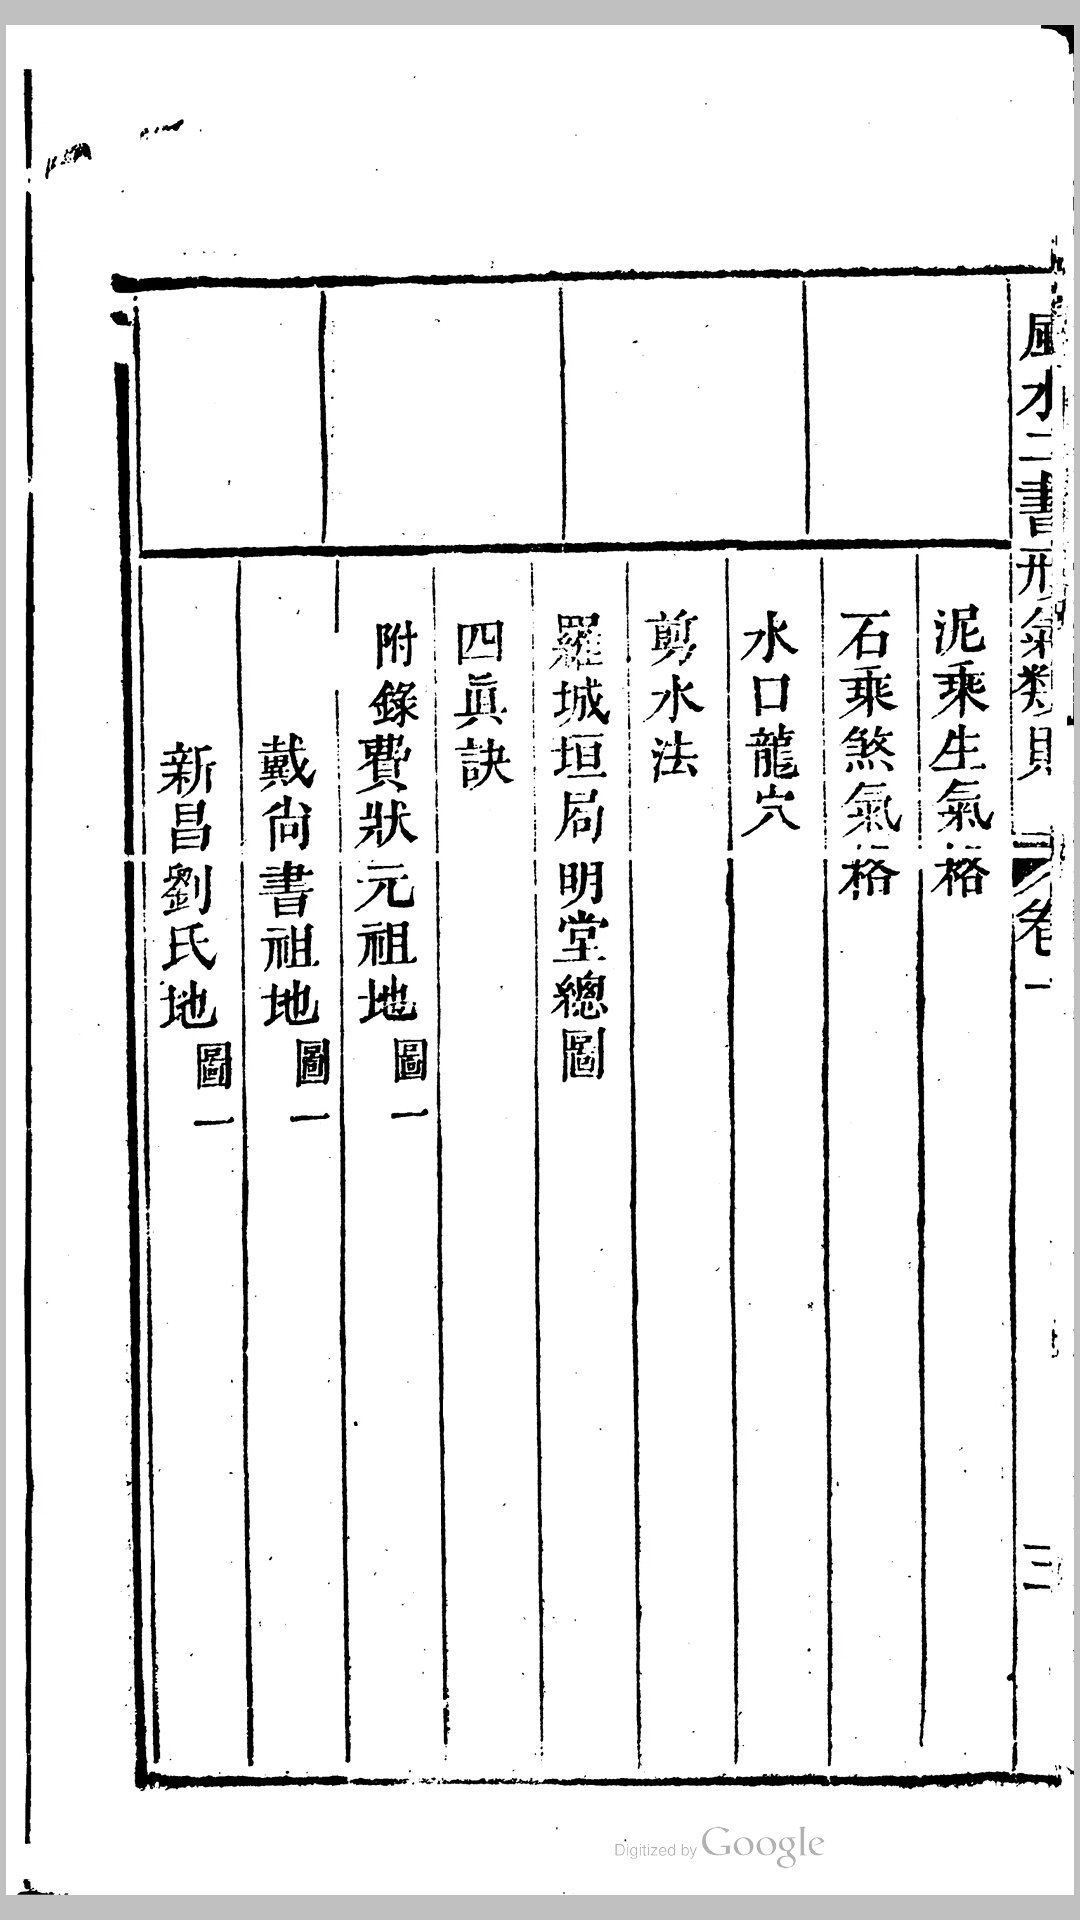 風水二書形氣類則 卷一 三
泥乘生氣格
石乘煞氣格
水口龍穴
剪水法
羅城垣局明堂總圖
四眞訣
附錄費狀元祖地圖一
戴尙書祖地圖一
新昌劉氏地圖一
Digitized by Google